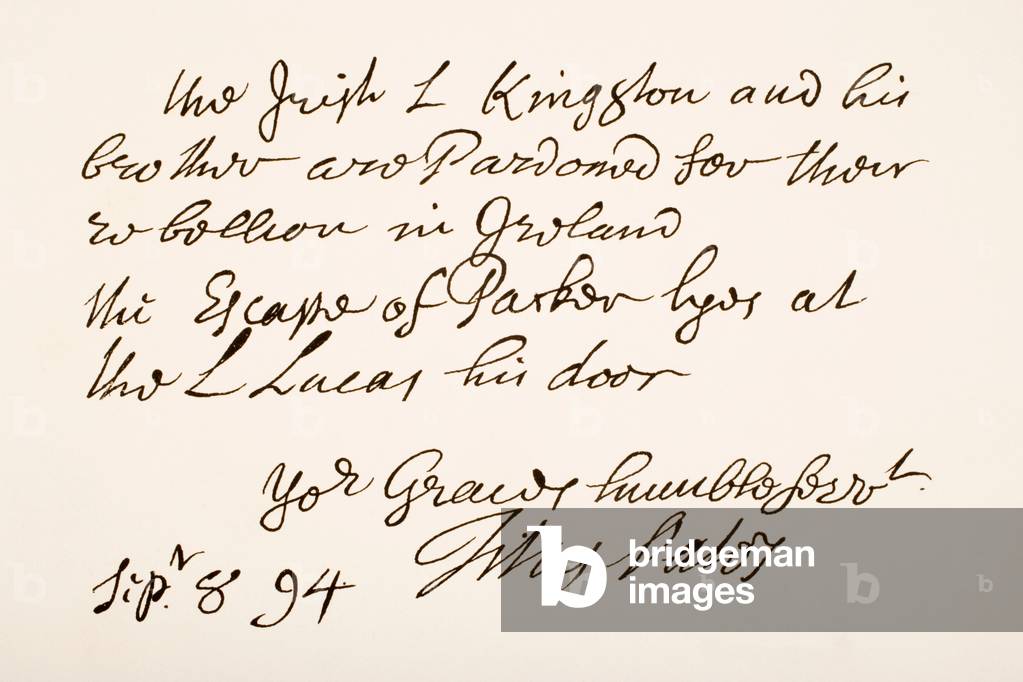 the Irish L Kingston and his
brother are Pardoned for their
rebellion in Ireland
the Escape of Parker lyes at
the L Lucas his door
Yor Graces humble servt.
Titus Oates
Sepr. 8 94
bridgeman
images